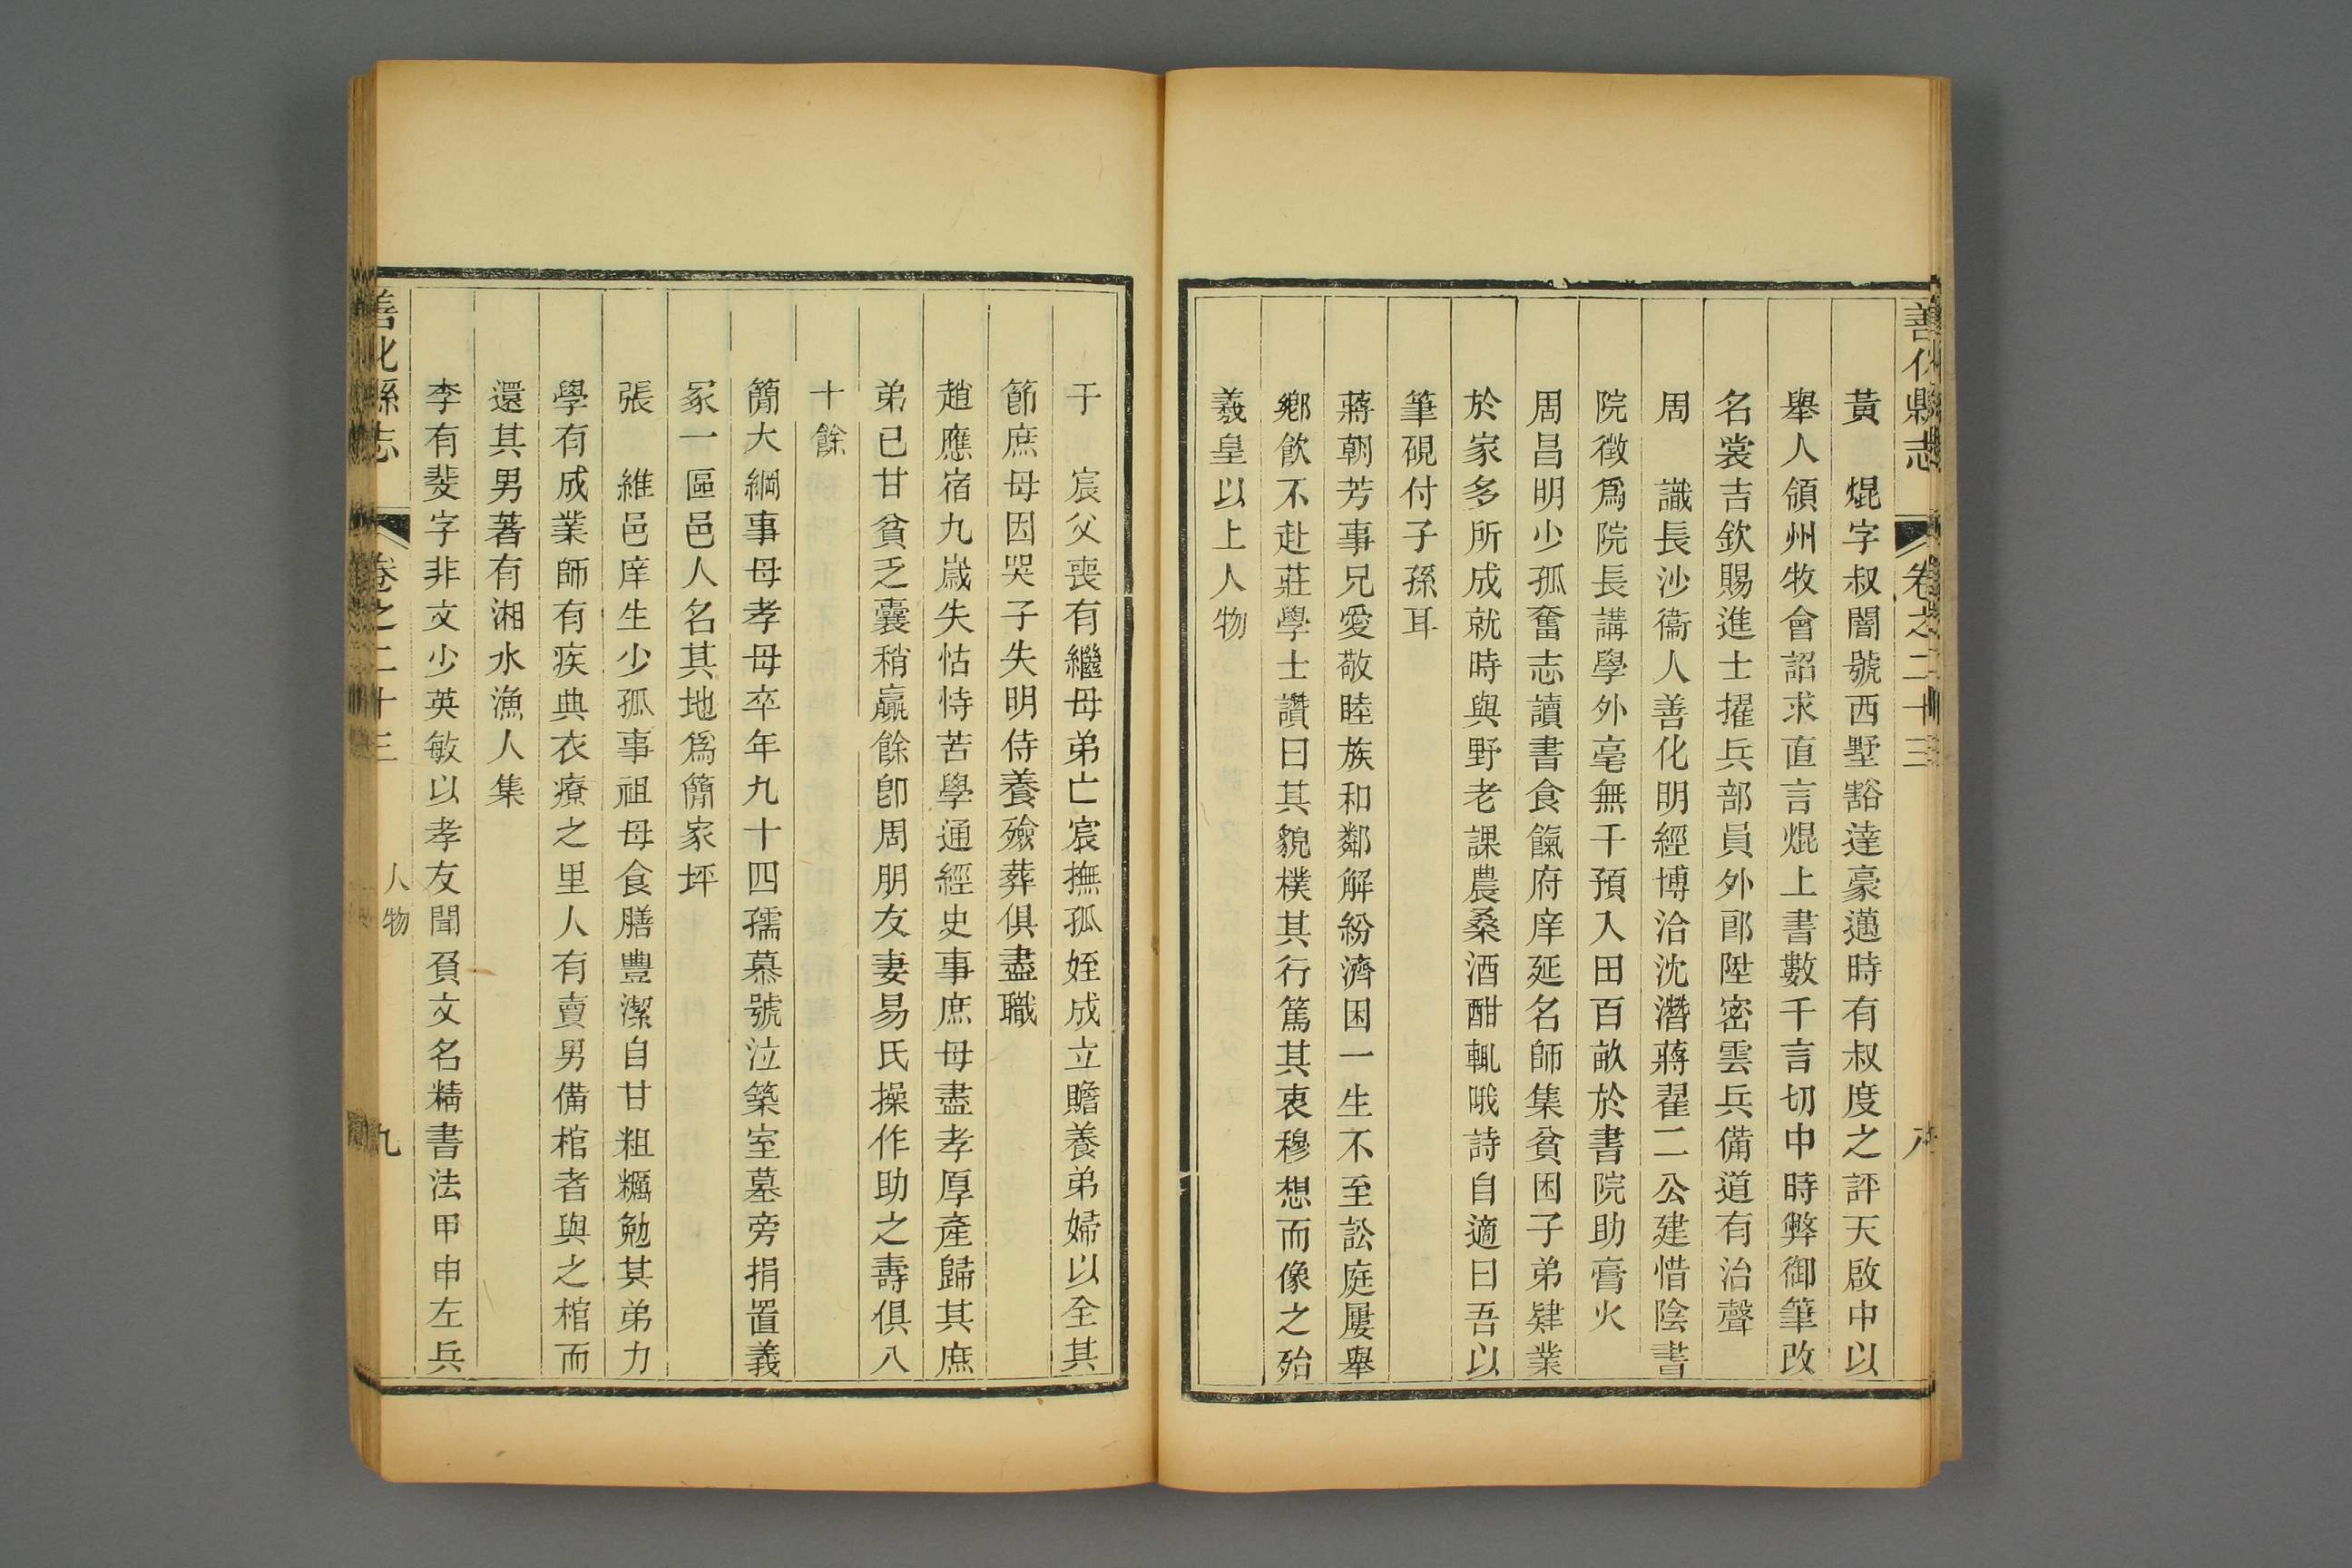 善化縣志 卷之二十三 八
黃　焜字叔闇號西墅豁達豪邁時有叔度之評天啟中以
舉人領州牧會詔求直言焜上書數千言切中時弊御筆改
名裳吉欽賜進士擢兵部員外郎陞密雲兵備道有治聲
周　識長沙衞人善化明經博洽沈潛蔣翟二公建惜陰書
院徵爲院長講學外毫無干預入田百畝於書院助膏火
周昌明少孤奮志讀書食餼府庠延名師集貧困子弟肄業
於家多所成就時與野老課農桑酒酣輒哦詩自適曰吾以
筆硯付子孫耳
蔣朝芳事兄愛敬睦族和鄰解紛濟困一生不至訟庭屢舉
鄉飲不赴莊學士讚曰其貌樸其行篤其衷穆想而像之殆
羲皇以上人物
于　宸父喪有繼母弟亡宸撫孤姪成立贍養弟婦以全其
節庶母因哭子失明侍養殮葬俱盡職
趙應宿九歲失怙恃苦學通經史事庶母盡孝厚產歸其庶
弟已甘貧乏囊稍贏餘卽周朋友妻易氏操作助之壽俱八
十餘
簡大綱事母孝母卒年九十四孺慕號泣築室墓旁捐置義
冢一區邑人名其地爲簡家坪
張　維邑庠生少孤事祖母食膳豐潔自甘粗糲勉其弟力
學有成業師有疾典衣療之里人有賣男備棺者與之棺而
還其男著有湘水漁人集
李有斐字非文少英敏以孝友聞負文名精書法甲申左兵
善化縣志 卷之二十三 人物 九